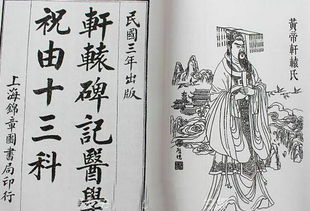 民國三年出版
軒轅碑記醫學
祝由十三科
上海錦章圖書局印行
黃帝軒轅氏